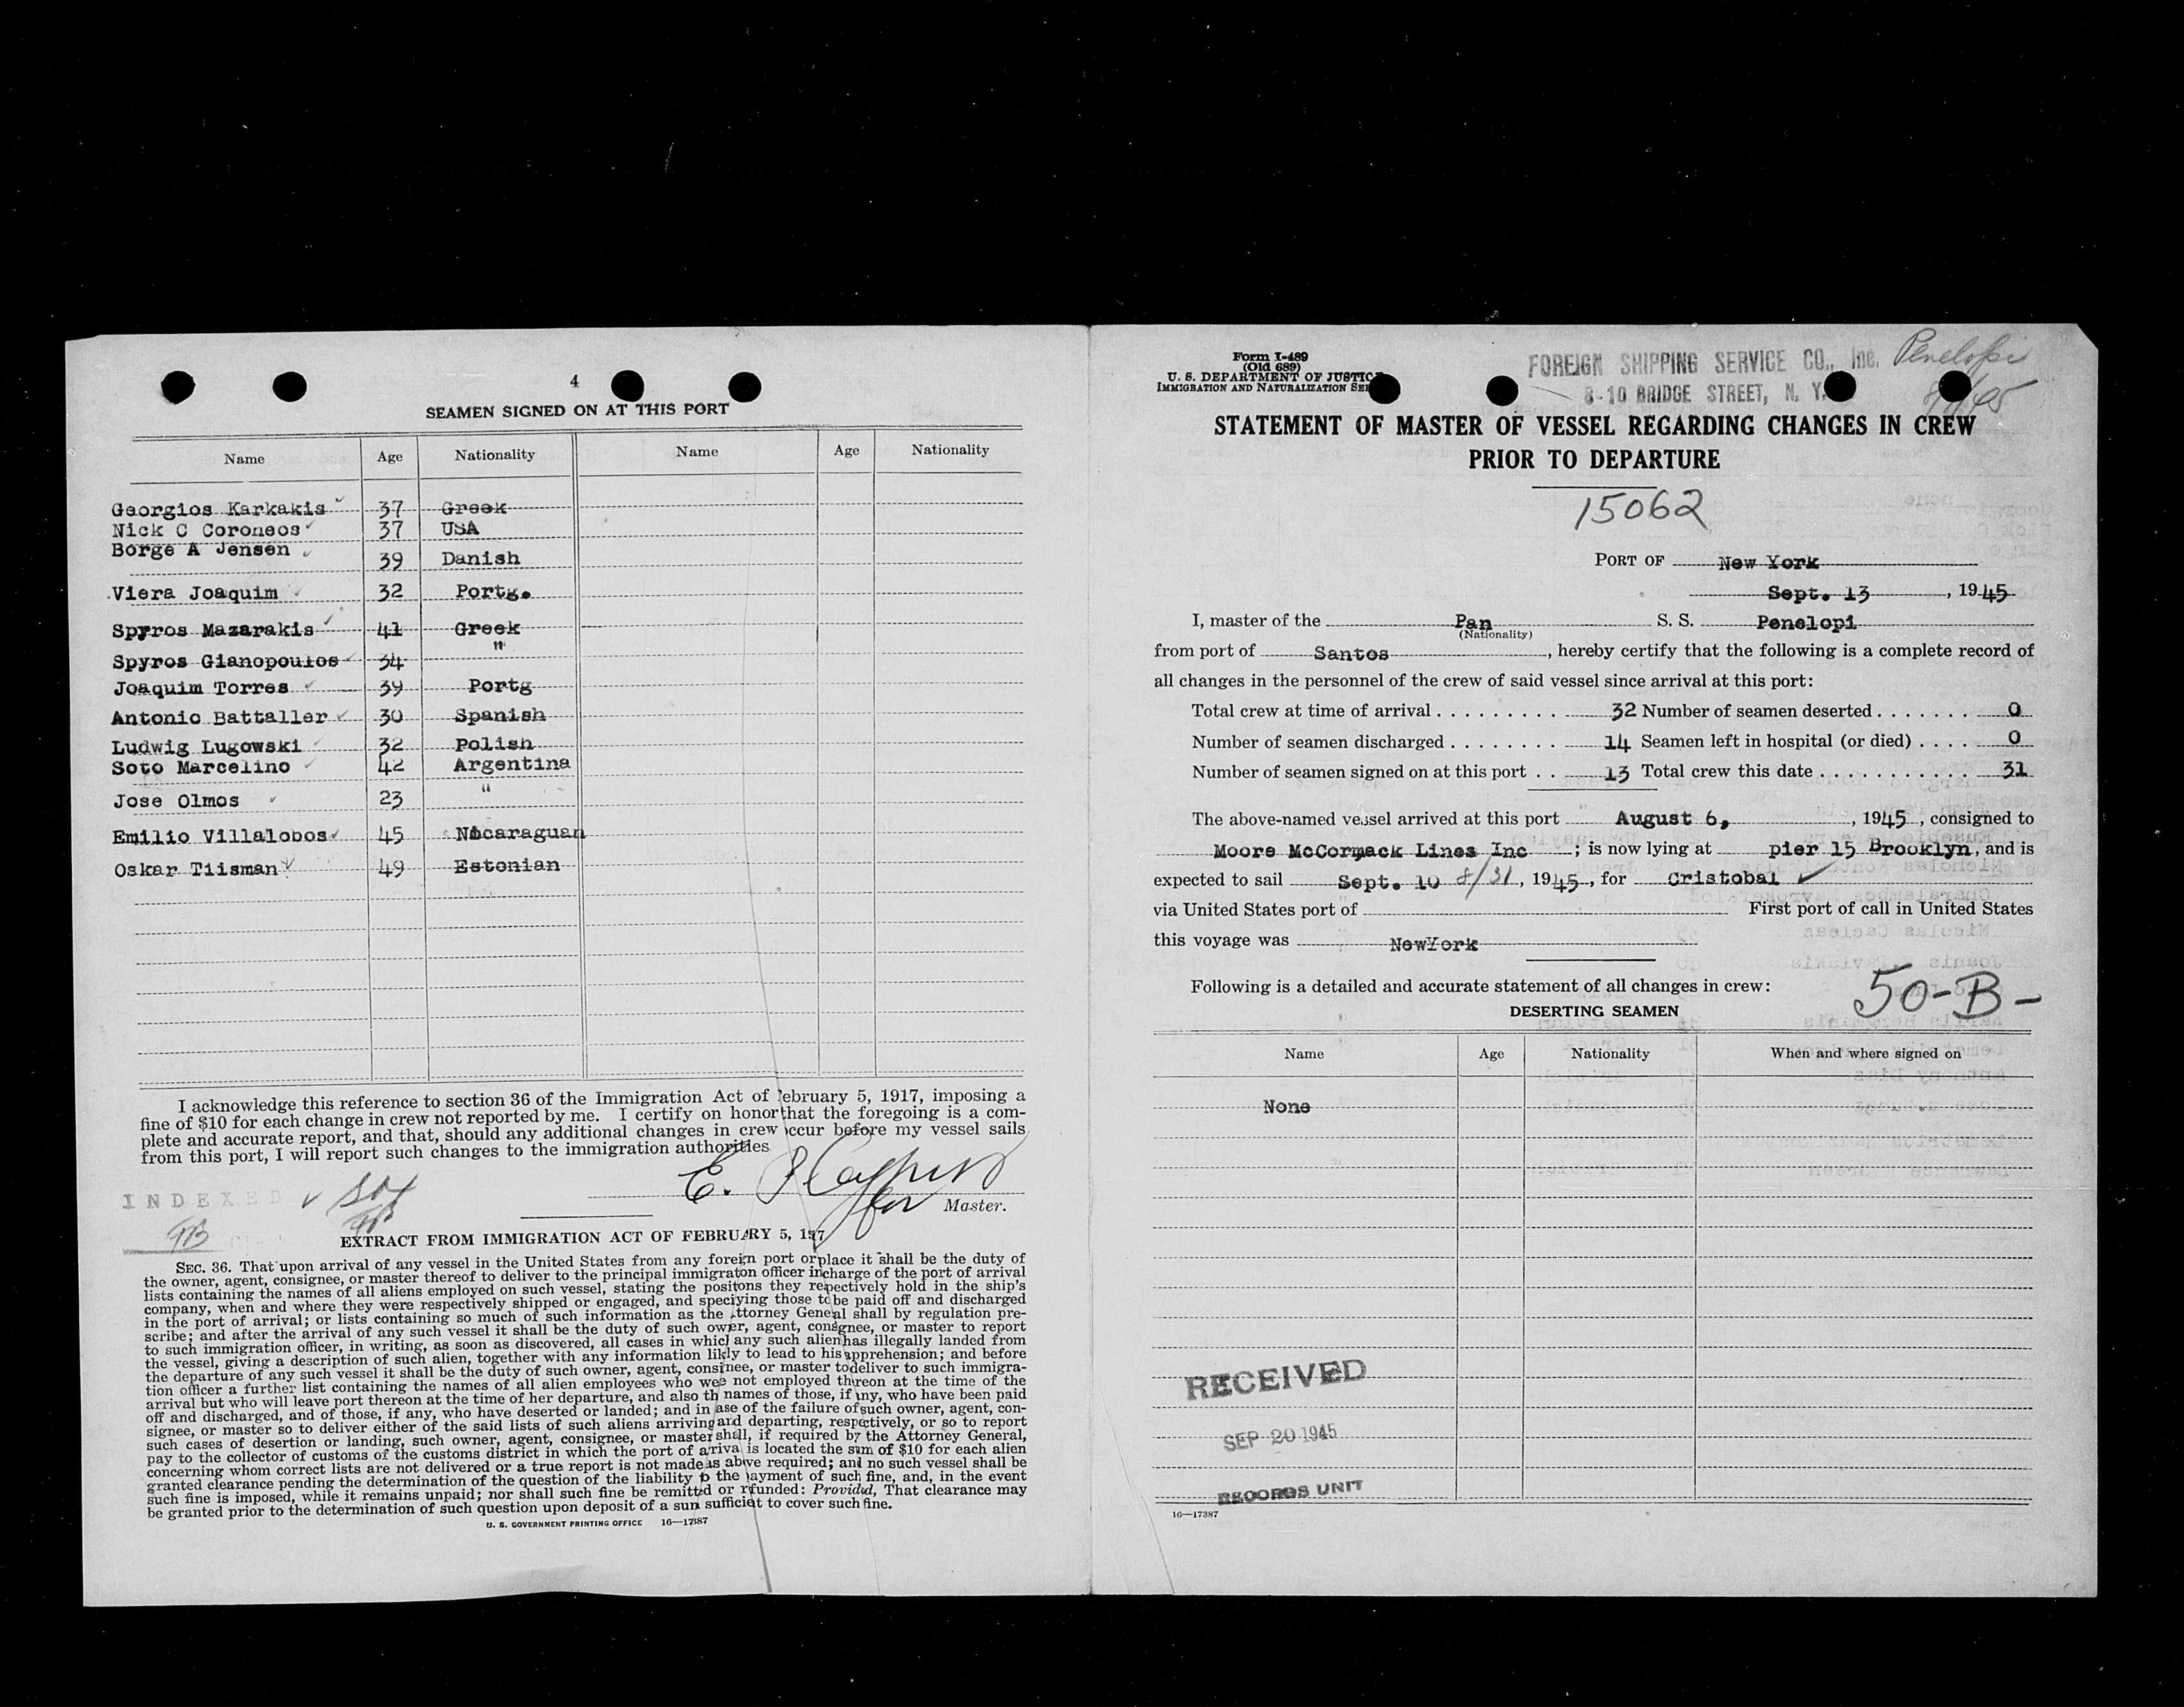 4
SEAMEN SIGNED ON AT THIS PORT
Name Age Nationality Name Age Nationality
Georgios Karkakis 37 Greek
Nick C Coroneos 37 USA
Borge A Jensen 39 Danish
Viera Joaquim 32 Portg.
Spyros Mazarakis 41 Greek
Spyros Gianopoulos 34 "
Joaquim Torres 39 Portg
Antonio Battaller 30 Spanish
Ludwig Lugowski 32 Polish
Soto Marcelino 42 Argentina
Jose Olmos 23 "
Emilio Villalobos 45 Nicaraguan
Oskar Tiisman 49 Estonian
I acknowledge this reference to section 36 of the Immigration Act of February 5, 1917, imposing a
fine of $10 for each change in crew not reported by me. I certify on honor that the foregoing is a com-
plete and accurate report, and that, should any additional changes in crew occur before my vessel sails
from this port, I will report such changes to the immigration authorities
E.
for Master.
INDEXED
EXTRACT FROM IMMIGRATION ACT OF FEBRUARY 5, 197
SEC. 36. That upon arrival of any vessel in the United States from any foreign port or place it shall be the duty of
the owner, agent, consignee, or master thereof to deliver to the principal immigraton officer in charge of the port of arrival
lists containing the names of all aliens employed on such vessel, stating the positons they repectively hold in the ship's
company, when and where they were respectively shipped or engaged, and speciying those to be paid off and discharged
in the port of arrival; or lists containing so much of such information as the Attorney General shall by regulation pre-
scribe; and after the arrival of any such vessel it shall be the duty of such owner, agent, consignee, or master to report
to such immigration officer, in writing, as soon as discovered, all cases in which any such alien has illegally landed from
the vessel, giving a description of such alien, together with any information likly to lead to his apprehension; and before
the departure of any such vessel it shall be the duty of such owner, agent, consinee, or master to deliver to such immigra-
tion officer a further list containing the names of all alien employees who wee not employed thereon at the time of the
arrival but who will leave port thereon at the time of her departure, and also th names of those, if any, who have been paid
off and discharged, and of those, if any, who have deserted or landed; and in ase of the failure of such owner, agent, con-
signee, or master so to deliver either of the said lists of such aliens arriving ard departing, respectively, or so to report
such cases of desertion or landing, such owner, agent, consignee, or master shall, if required by the Attorney General,
pay to the collector of customs of the customs district in which the port of arriva is located the sum of $10 for each alien
concerning whom correct lists are not delivered or a true report is not made as above required; and no such vessel shall be
granted clearance pending the determination of the question of the liability to the payment of such fine, and, in the event
such fine is imposed, while it remains unpaid; nor shall such fine be remitted or refunded: Provided, That clearance may
be granted prior to the determination of such question upon deposit of a sum sufficient to cover such fine.
U. S. GOVERNMENT PRINTING OFFICE 16—17387
Form I-489
(Old 689)
U. S. DEPARTMENT OF JUSTICE
IMMIGRATION AND NATURALIZATION SER
FOREIGN SHIPPING SERVICE CO., Inc.
8-10 BRIDGE STREET, N. Y.
Penelopi
STATEMENT OF MASTER OF VESSEL REGARDING CHANGES IN CREW
PRIOR TO DEPARTURE
15062
PORT OF New York
Sept. 13, 1945
I, master of the Pan S. S. Penelopi
(Nationality)
from port of Santos, hereby certify that the following is a complete record of
all changes in the personnel of the crew of said vessel since arrival at this port:
Total crew at time of arrival . . . . . . . . . . 32 Number of seamen deserted . . . . . . . 0
Number of seamen discharged . . . . . . . . 14 Seamen left in hospital (or died) . . . . 0
Number of seamen signed on at this port . . 13 Total crew this date . . . . . . . . . . . 31
The above-named vessel arrived at this port August 6, , 1945 , consigned to
Moore McCormack Lines Inc ; is now lying at pier 15 Brooklyn, and is
expected to sail Sept. 10 8/31, 1945, for Cristobal
via United States port of First port of call in United States
this voyage was NewYork
Following is a detailed and accurate statement of all changes in crew:
50-B-
DESERTING SEAMEN
Name Age Nationality When and where signed on
None
RECEIVED
SEP 20 1945
RECORDS UNIT
16—17387